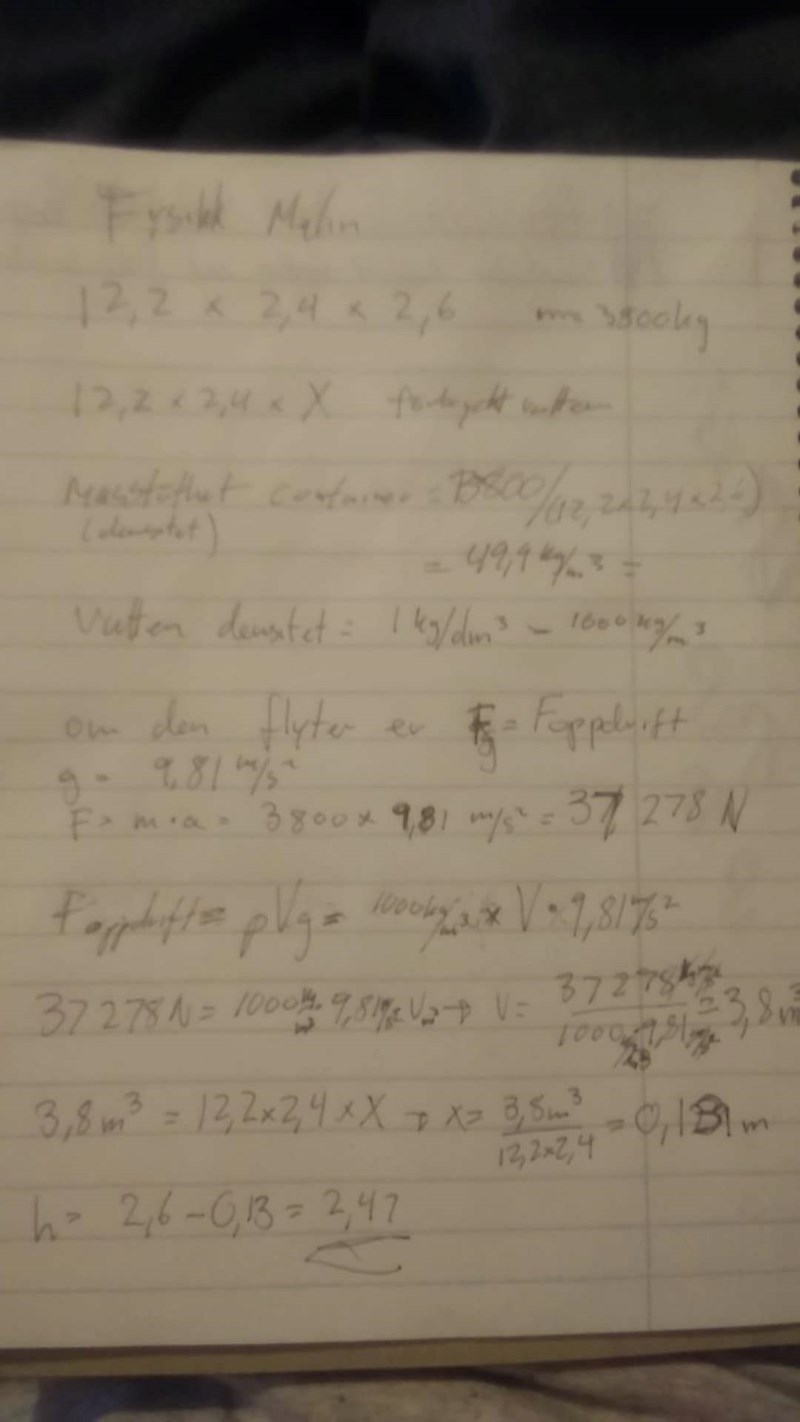 Fysikk Malin
12,2 x 2,4 x 2,6 m= 3800kg
12,2 x 2,4 x X vatten
container = 3800/(12,2x2,4x2,6)
= 49,9 kg/m³ =
Vatten densitet = 1 kg/dm³ - 1000 kg/m³
om den flyter er Fg = Foppdrift
g = 9,81 m/s²
F = m·a = 3800 x 9,81 m/s² = 37 278 N
Foppdrift = ρVg = 1000kg/m³ x V · 9,81 m/s²
37 278 N = 1000 kg/m³ 9,81 V → V = 37 278 / 1000 · 9,81 = 3,8 m³
3,8 m³ = 12,2x2,4xX → x = 3,8m³ / 12,2x2,4 = 0,131 m
h = 2,6 - 0,13 = 2,47